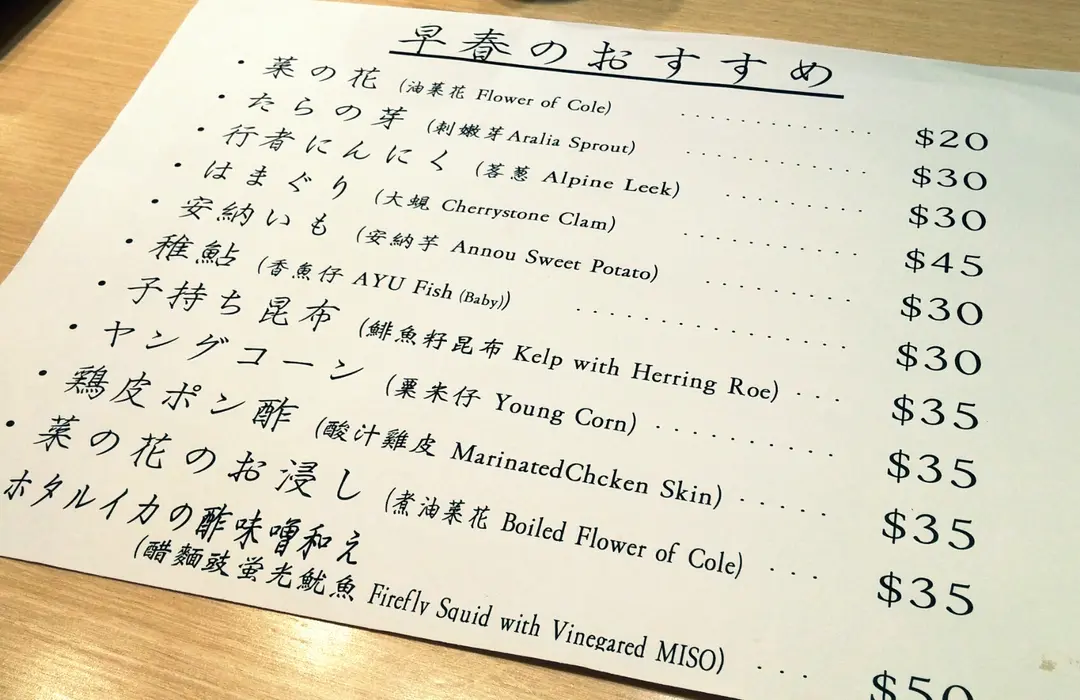 早春のおすすめ
・菜の花 (油菜花 Flower of Cole) ............ $20
・たらの芽 (刺嫩芽Aralia Sprout) ............ $30
・行者にんにく (茖葱 Alpine Leek) .......... $30
・はまぐり (大蜆 Cherrystone Clam) ............ $45
・安納いも (安納芋 Annou Sweet Potato) .......... $30
・稚鮎 (香魚仔 AYU Fish (Baby)) ................ $30
・子持ち昆布 (鯡魚籽昆布 Kelp with Herring Roe) ... $35
・ヤングコーン (粟米仔 Young Corn) ........... $35
・鶏皮ポン酢 (酸汁雞皮 MarinatedChcken Skin) ...... $35
・菜の花のお浸し (煮油菜花 Boiled Flower of Cole) ... $35
ホタルイカの酢味噌和え
(醋麵豉蛍光魷魚 Firefly Squid with Vinegared MISO) ... $50